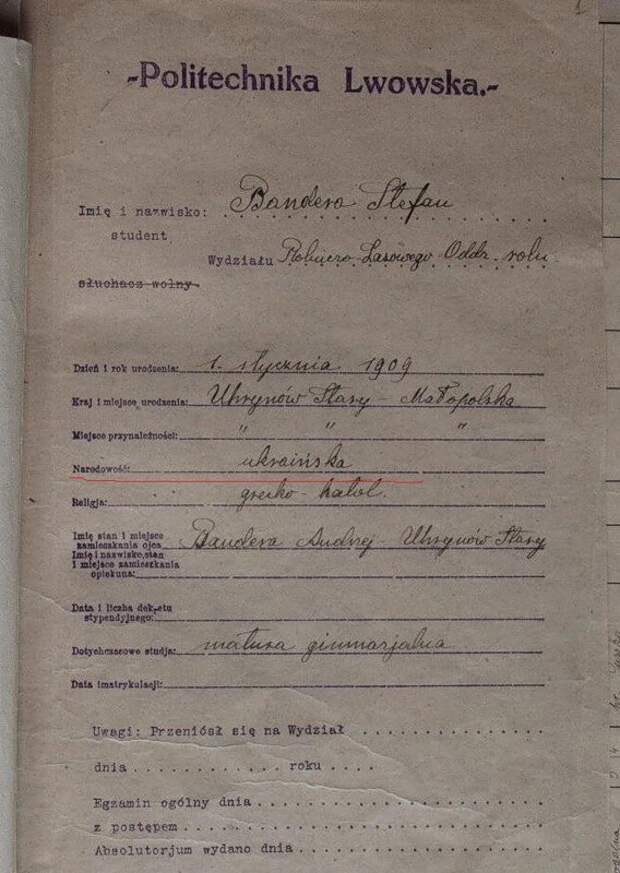 -Politechnika Lwowska.-
Imię i nazwisko: Bandera Stefan
student
Wydziału Rolniczo-Lasowego Oddz. roln.
słuchacz wolny
Dzień i rok urodzenia: 1. stycznia 1909
Kraj i miejsce urodzenia: Uhrynów Stary - Małopolska
Miejsce przynależności: " " "
Narodowość: ukraińska
Religja: grecko-katol.
Imię stan i miejsce
zamieszkania ojca Bandera Andrej - Uhrynów Stary
Imię i nazwisko, stan
i miejsce zamieszkania
opiekuna:
Data i liczba dekretu
stypendyjnego:
Dotychczasowe studja: matura gimnazjalna
Data imatrykulacji:
Uwagi: Przeniósł się na Wydział
dnia roku
Egzamin ogólny dnia
z postępem
Absolutorjum wydano dnia